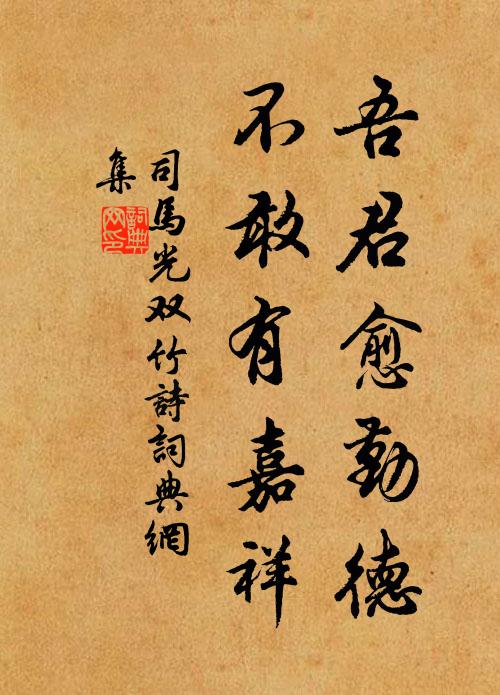 吾君愈勤德
不敢有嘉祥
司馬光双竹詩詞典網
集
詞典
网印